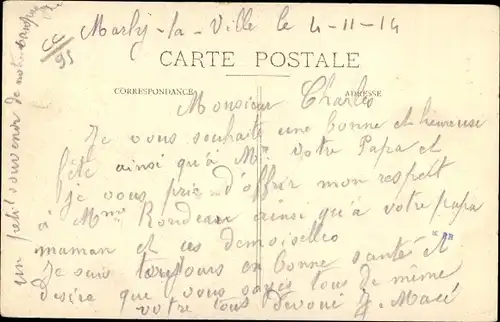 Marly-la-Ville le 4-11-14
CC/95
CARTE POSTALE
CORRESPONDANCE
ADRESSE
Monsieur Charles
Je vous souhaite une bonne et heureuse
fête ainsi qu'à Mr votre Papa et
je vous prie d'offrir mon respect
à Mme Rondeau ainsi qu'à votre papa
maman et ces demoiselles
Je suis toujours en bonne santé et
désire que vous soyez tous de même
votre tous dévoué
un petit souvenir de notre